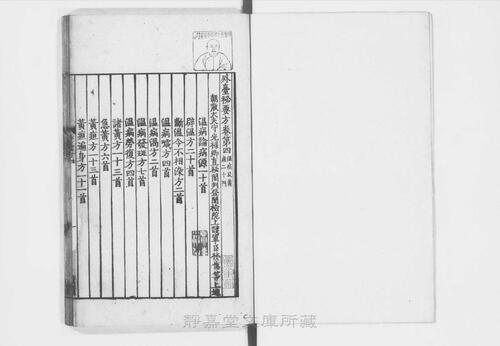 外臺秘要方卷第四 溫病及黃疸二十門
朝散大夫守光祿卿直祕閣判登聞檢院上護軍臣林億等上進
溫病論病源一十首
辟溫方二十首
斷溫令不相染方二首
溫病噦方四首
溫病渴方二首
溫病發斑方七首
溫病勞復方四首
諸黃方一十三首
急黃方六首
黃疸方一十三首
黃疸遍身方一十一首
靜嘉堂文庫所藏